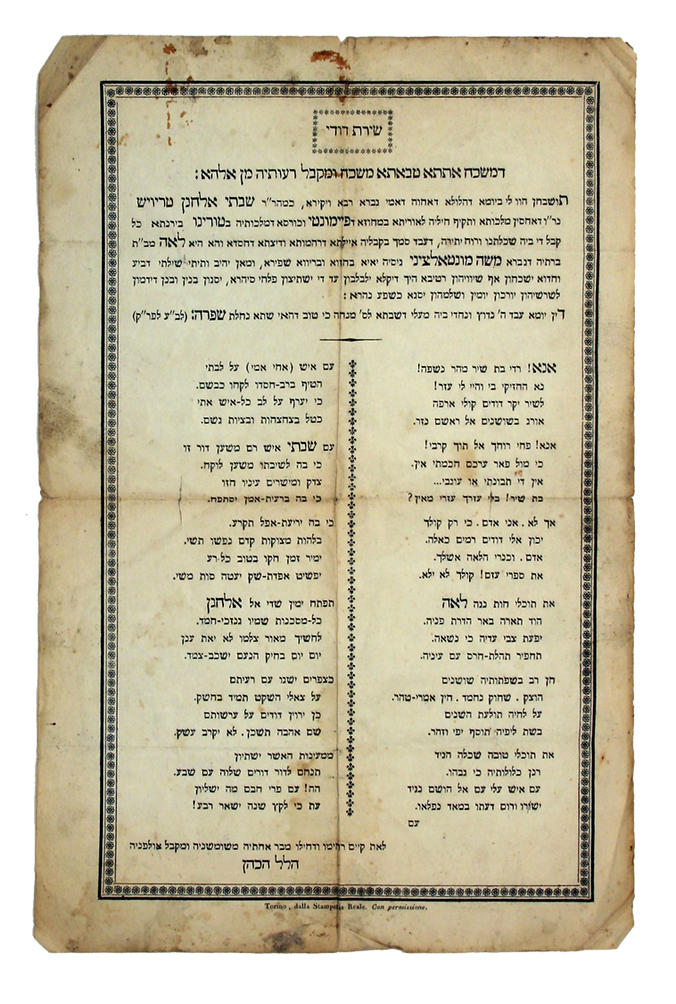 שירת דודי
דמשכח אתתא טבאתא משכח ומקבל רעותיה מן אלהא :
תושבחן הוו לי ביומא דהלולא דאחוה דאמי גברא רבא ויקירא, כמהר״ר שבתי אלחנן טריויש
נר״ו דאחסין מלכותא ותקיף חיליה לאוריתא במחוזא דפיימונטי וכורסא דמלכותיה בטורינו בירנתא כל
קבל די ביה שכלתנו ורוח יתירה, דעבד סמך בקבליה איילתא דרחמותא ודיצתא דחסדא והא היא לאה מב״ת
ברתיה דגברא משה מונטאלציני ניסיה יאיא בחזוא ובריווא שפירא, ומאן יהיב ותיתי שילתי דביע
וחדוא ישכחון אף שיוויהון רטיבא היך דיקלא ילבלבון עד די ישתיצון פלחי סיהרא, יסגון בנין ובנן דידמון
לשרשיהון יורכון יומין ושלמהון יסגא כשפע נהרא :
דין יומא עבד ה׳ נדוץ ונחדי ביה מעלי דשבתא לס׳ מנחה כי טוב דהאי שתא נחלת שפרה: (לב״ע לפר״ק)
אנא! רדי בת שיר מהר נשפה!
נא החזיקי בי והיי לי עזר!
לשיר יקר דודים קולי ארפה
אורג בשושנים אל ראשם נזר.
אנא! פחי רוחך אל תוך קרבי!
כי מול פאר ערכם חכמתי אין.
אין די תבונתי או עוגבי...
בת שיר! בלי עזרך עזרי מאין?
אך לא . אני אדם . כי רק קולך
יכון אלי דודים רמים כאלה.
אדם . וכנרי הלאה אשלך.
את ספרי עזם! קולך לא ילא.
את תוכלי חות נגה לאה
הוד תארה באר הדרת פניה.
יפעת צבי עדיה כי נשאה.
תחפיר תהלת-חרס עם עיניה.
חן רב בשפתותיה שושנים
הוצק . שחוק נחמד . חין אמרי-טהר.
על לחיה תולעת השנים
בשת ליפיה תוסף יפי וזהר.
את תוכלי טובה שכלה הגיד
רגן כלולותיה כי נגבהו.
עם איש עלי עם אל הושם נגיד
ישורו ורום דעתו במאד נפלאו.
עם
עם איש (אחי אמי) על לבתי
הטיף ברב-חסדו לקחו כבשם.
כי יערף על לב כל-איש אתי
כטל בצחצחות ובציות גשם.
עם שבתי איש רם משען דור זו
כי בה לשיבתו משען לוקח.
צדק ומישרים עיניו חזו
כי בה ברעית-אמן יסתפח.
כי בה יריעת-אפל תקרע.
בלהות מצוקות קדם נפשו תשי.
ימיר זמן חקו בטוב כל-רע
יפשיט אפדת-שק יעטה סות משי.
תפתח ימין שדי אל אלחנן
כל-מסכנות שמיו גנזכי-חמד.
לחשיך מאור צלמו לא יאת ענן
יום יום בחיק הנעם ישכב-צמד.
כצפרים ישנו עם רעיתם
על צאלי השקט תמיד בחשק.
כן ירוין דודים על ערשותם
שם אהבה תשכן . לא יקרב עשק.
ממעינות האשר ישתיון
תנחם לדור דורים שלוה עם שבע.
הה! עם פרי חבם מה ישליון
עת כי לקץ שנה ישאר רבע!
לאת קיום רחימו ודחילו מבר אחתיה משומשניה ומקבל אולפניה
הלל הכהן
Torino, dalla Stamperia Reale. Con permissione.